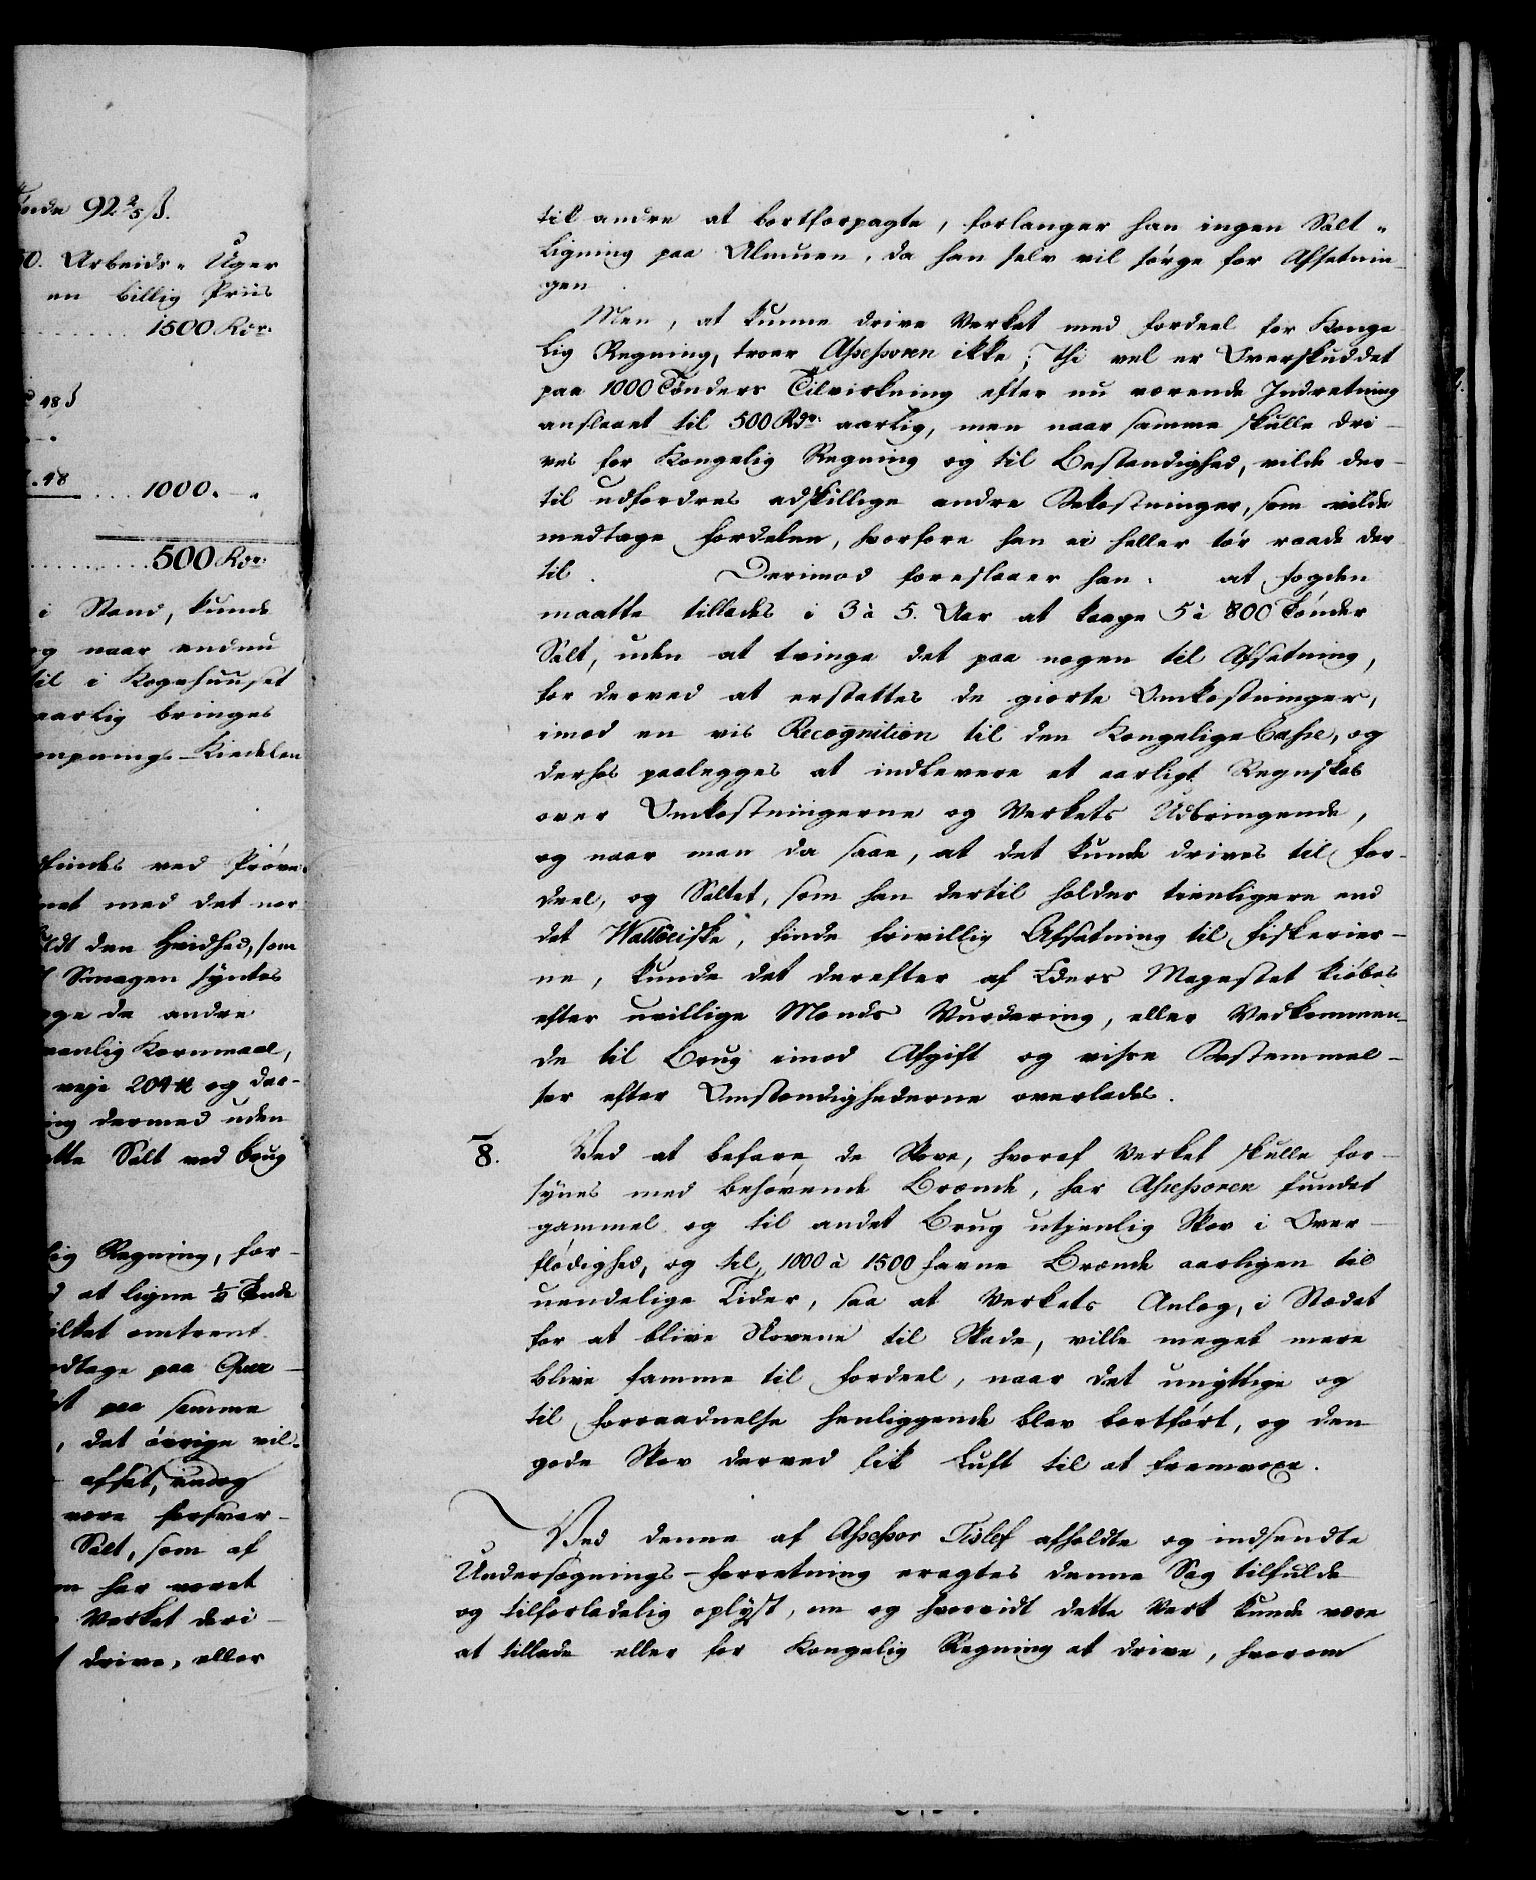 ønde 92 2/5 ß.
Arbeids- Uger
en billig Priis
1500 Rdr.
48 ß
.48 1000. -
500 Rdr.
i Stand, kunde
og naar endnu
til i Kogehuuset
aarlig bringes
Kiedelen
findes ved Prøve
met med det nor-
den Hvidhed, som
Smagen syntes
de andre
vanlig Kornmaal,
veje 204 ℔ og der-
ing dermed uden
Salt ved Brug
lig Regning, for-
at ligne 1/8 Tønde
ilket omtrent
dtage paa
paa samme
, det øvrige vil-
afsat,
være forsvar-
Salt, som af
har været
Verket dri-
drive, eller
til andre at bortforpagte, forlanger han ingen Salt-
Ligning paa Almuen, da han selv vil sørge for Afsætnin-
gen
Men, at kunne drive Verket med Fordeel for Konge-
lig Regning, troer Assessoren ikke; Thi vel er Overskuddet
paa 1000 Tønders Tilvirkning efter nu værende Indretning
anslaaet til 500 Rdr. aarlig, men naar samme skulle dri-
ves for Kongelig Regning og til Bestandighed, vilde der-
til udfordres adskillige andre Bekostninger, som vilde
medtage Fordelen, hvorfore han ei heller tør raade der-
til. Derimod foreslaaer han, at Fogden
maatte tillades i 3 à 5. Aar at kaage 5 à 800 Tønder
Salt, uden at tvinge det paa nogen til Afsætning,
for derved at erstattes de giorte Omkostninger,
imod en vis Recognition til den Kongelige Casse, og
derhos paalegges at indlevere et aarligt Regnskab
over Omkostningerne og Verkets Udbringende,
og naar man da saae, at det kunde drives til For-
deel, og Saltet, som han dertil holder tienligere end
det Walløeiske, finde frivillig Afsætning til Fiskerier-
ne, kunde det derefter af Eders Majestet kiøbes
efter uvillige Mænds Vurdering, eller Vedkommen-
de til Brug imod Afgift og visse Bestemmel-
ser efter Omstændighederne overlades.
8. Ved at befare de Skove, hvoraf Verket skulle for-
synes med behøvende Brænde, har Assessoren fundet
gammel og til andet Brug utjenlig Skov i Over-
flødighed, og til 1000 à 1500 Favne Brænde aarligen til
uendelige Tider, saa at Verkets Anlæg, i Stædet
for at blive Skovene til Skade, ville meget mere
blive samme til Fordeel, naar det unyttige og
til Forraadnelse henliggende blev bortført, og den
gode Skov derved fik Luft til at fremvoxe.
Ved denne af Assessor Tislef afholdte og indsendte
Undersøgnings-Forretning eragtes denne Sag tilfulde
og tilforladelig oplyst, om og hvorvidt dette Verk kunde være
at tillade eller for Kongelig Regning at drive, hvorom